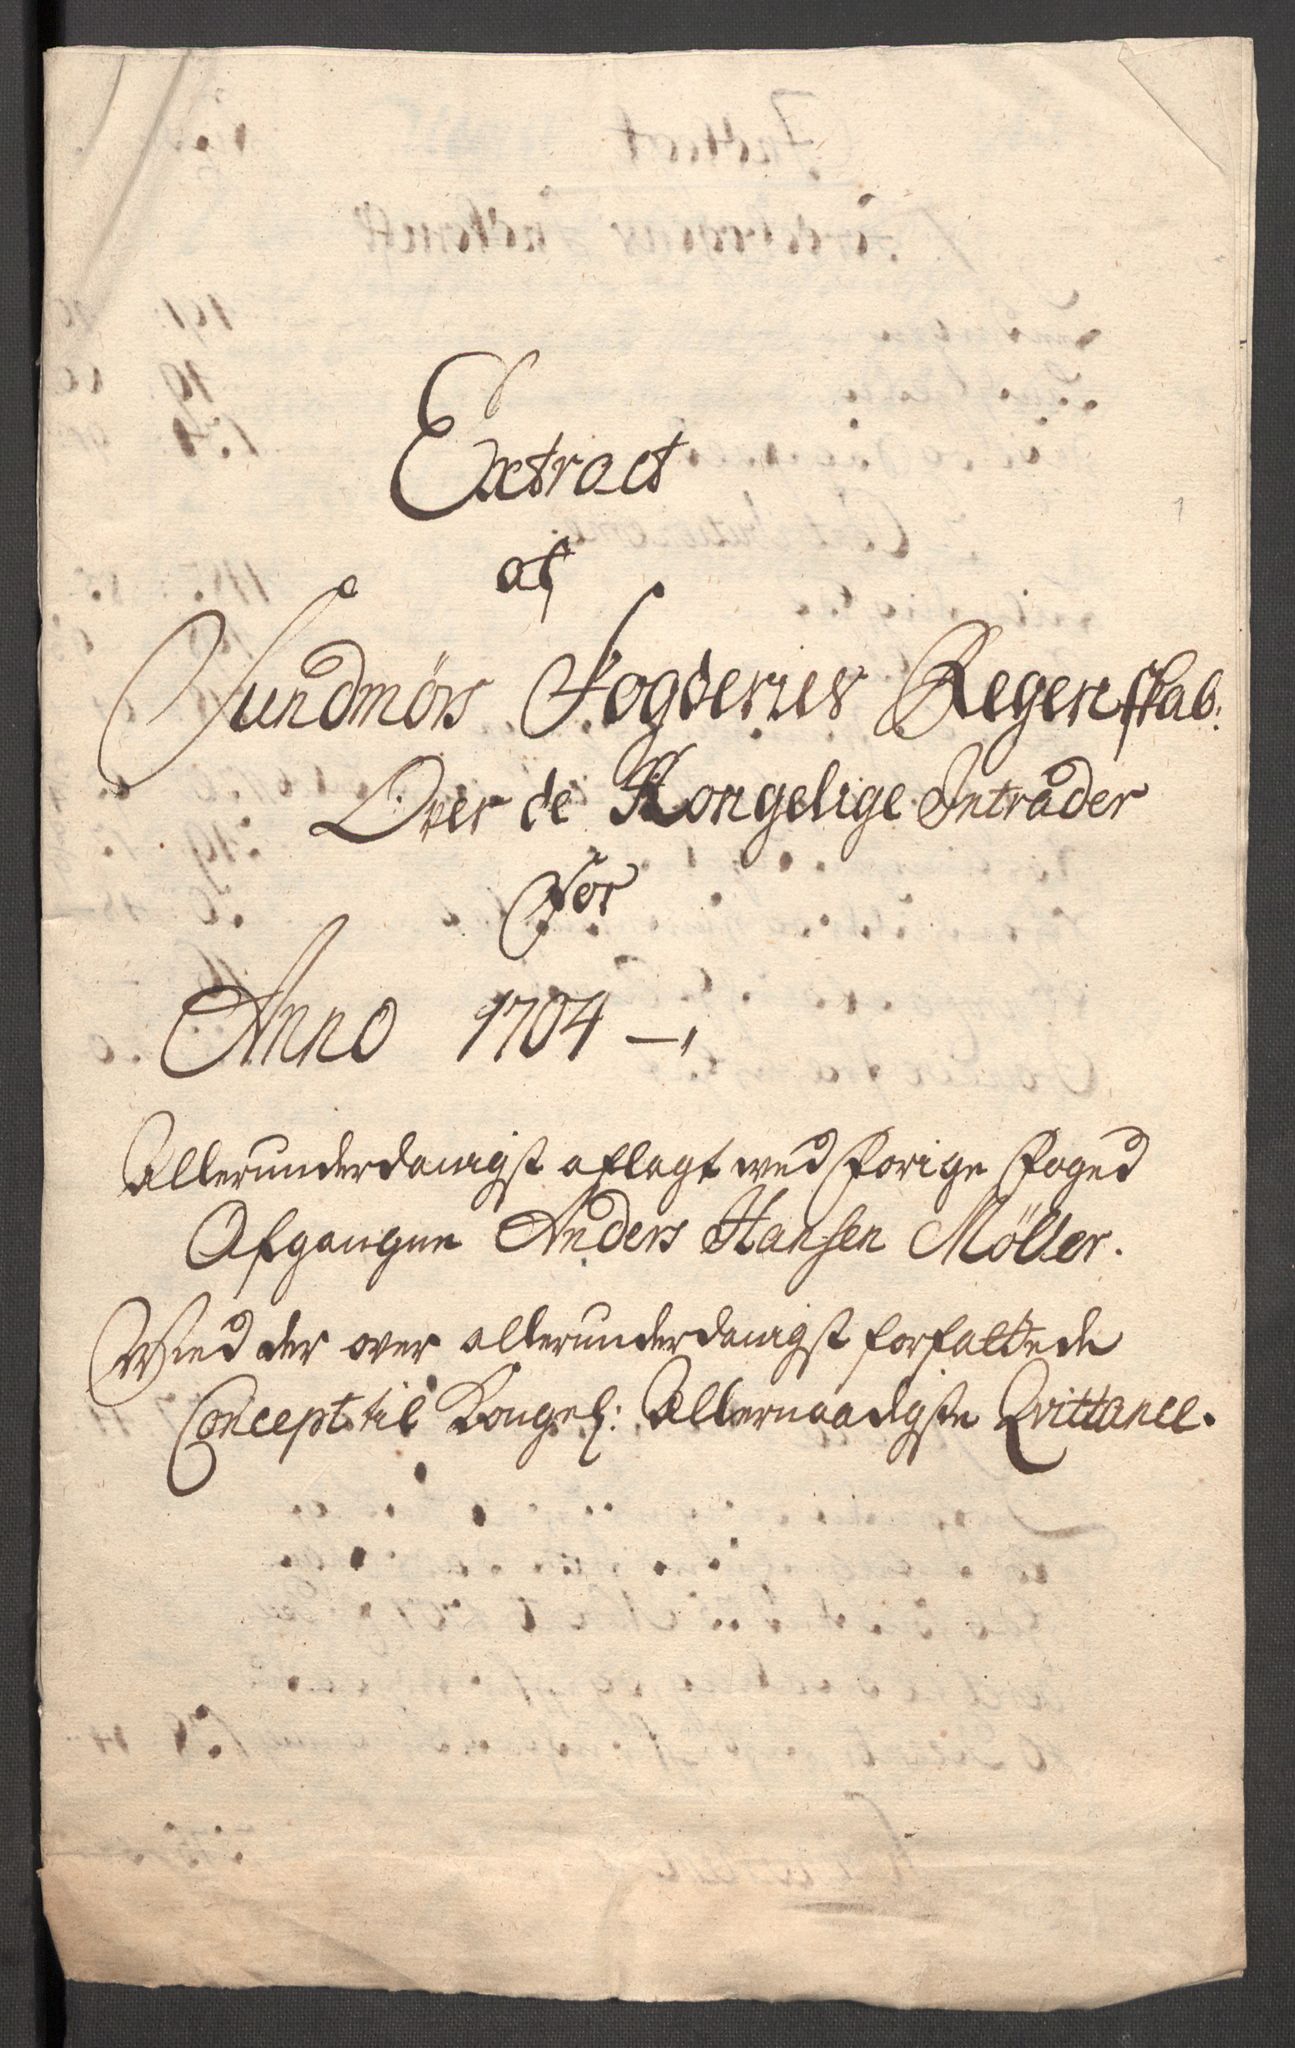 Extract
af
Sundmörs Fogderies Regenskab:
Over de Kongelige Intrader
For
Anno 1704 —,
Allerunderdanigst aflagt wed forige Foged
Afgangne Anders Hansen Möller.
Wied der over allerunderdanigst forfattede
Concept til Kongel: Allernaadigste Qvittance.
1